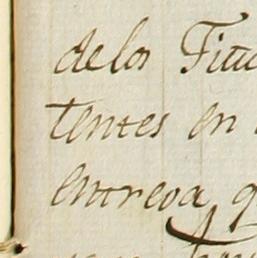 de los Titu
tentes en
entrega q